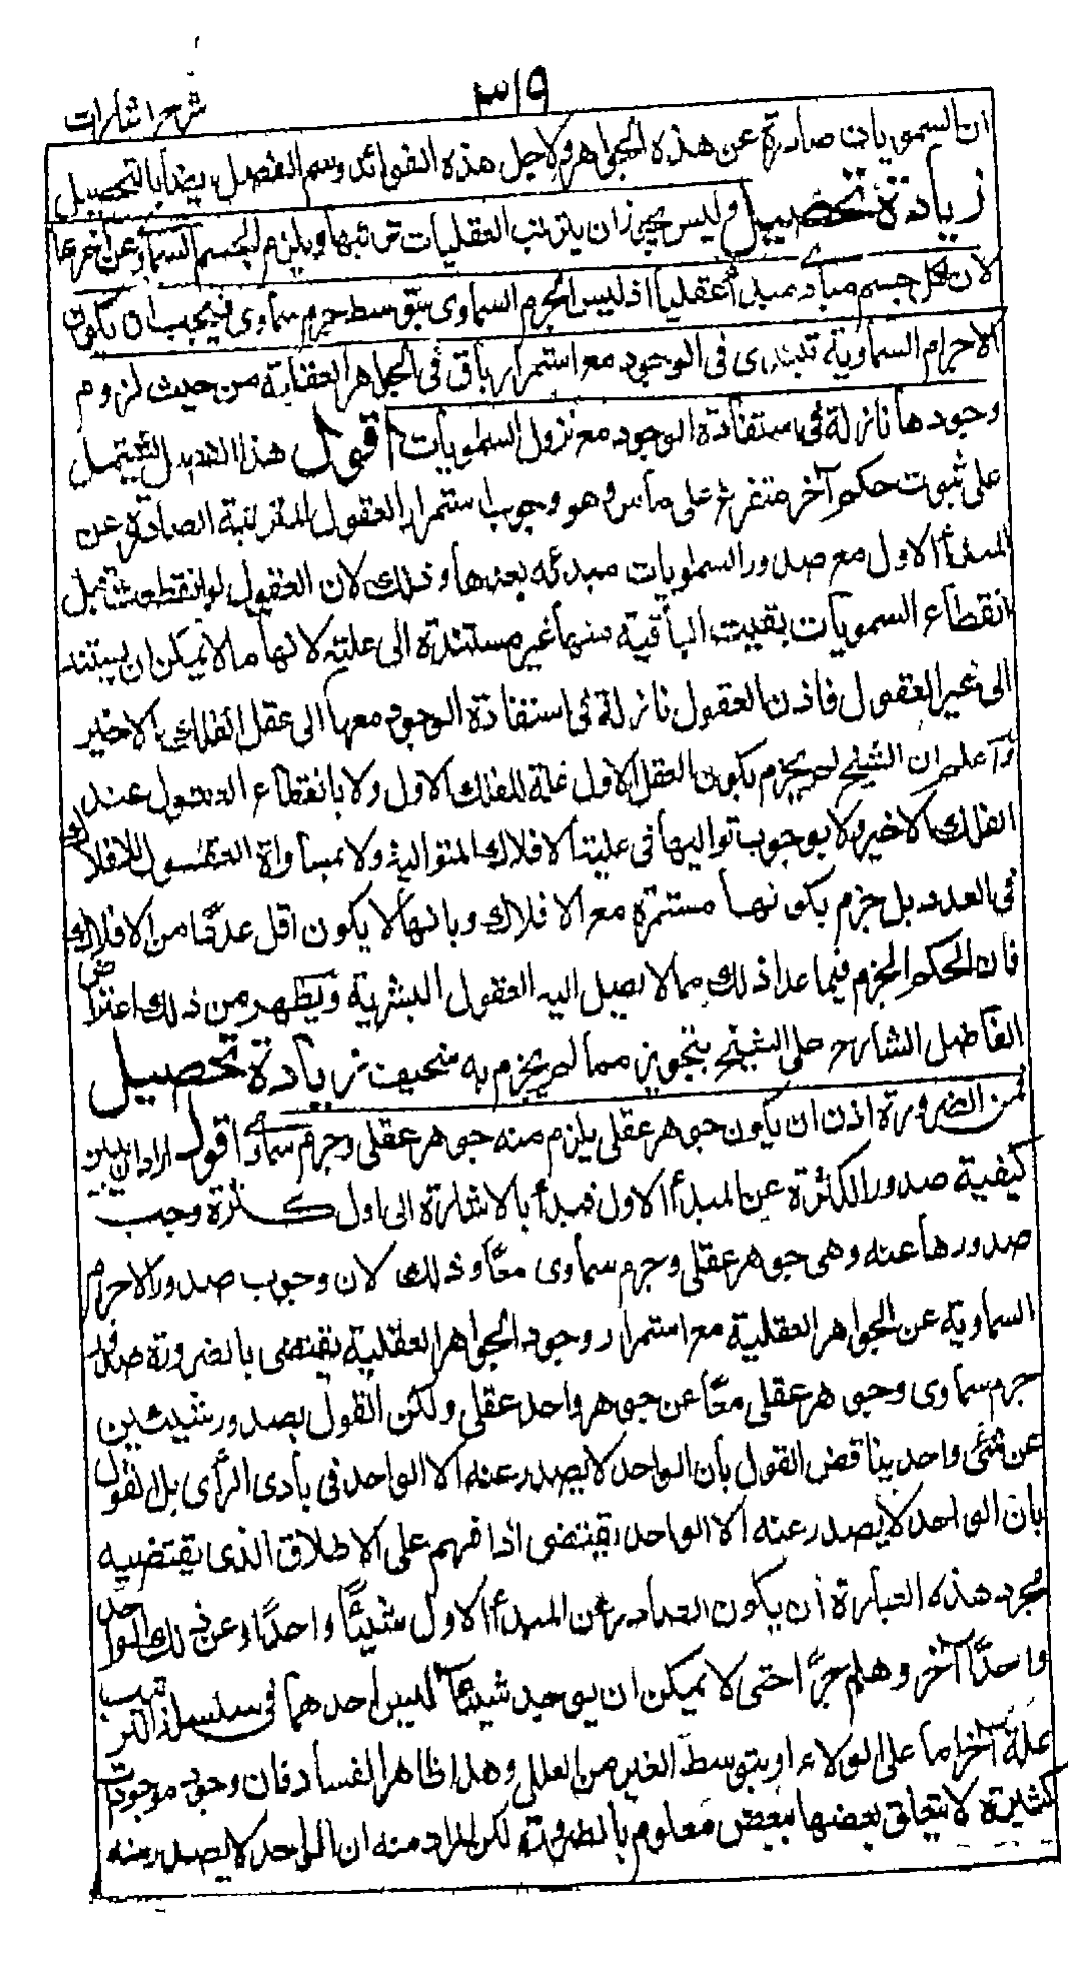 ٣١٩
شرح اشارات
ان السمويات صادرة عن هذه الجواهر ولاجل هذه الفوائد وسم الفصل ايضا بالتحصيل
زيادة تحصيل وليس يجوز ان يترتب العقليات ترتبها ويلزم الجسم السماوى عن اخرها
لان لكل جسم سماوى مبدأ عقليا اذ ليس الجرم السماوى بتوسط جرم سماوى فيجب ان يكون
الاجرام السماوية تبتدى فى الوجود مع استمرار باق فى الجواهر العقلية من حيث لزوم
وجودها نازلة فى استفادة الوجود مع نزول السماويات اقول هذا الفصل يشتمل
على ثبوت حكم آخر متفرع على ما مر وهو وجوب استمرار العقول المترتبة الصادرة عن
المبدأ الاول مع صدور السماويات مبدئه بعدها وذلك لان العقول لو انقطعت قبل
انقطاع السمويات بقيت الباقية منها غير مستندة الى علته لانها ما لا يمكن ان يستند
الى غير العقول فاذن العقول نازلة فى استفادة الوجود معها الى عقل الفلك الاخير
واعلم ان الشيخ لم يجزم بكون العقل الاول علة للفلك الاول ولا بانقطاع العقول عند
الفلك الاخير ولا بوجوب تواليها فى علية الافلاك المتوالية ولا بمساواة العقول للافلاك
فى العدد بل جزم بكونها مستمرة مع الافلاك وبانها لا يكون اقل عددا من الافلاك
فان الحكم الجزم فيما عدا ذلك مما لا يصل اليه العقول البشرية ويظهر من ذلك اعتراض
الفاضل الشارح على الشيخ بتجويز مما لم يجزم به سخيف زيادة تحصيل
فمن الضرورة اذن ان يكون جوهر عقلى يلزم منه جوهر عقلى وجرم سماوى اقول اراد ان يبين
كيفية صدور الكثرة عن المبدأ الاول فبدأ بالاشارة الى اول كثرة وجب
صدورها عنه وهى جوهر عقلى وجرم سماوى معًا وذلك لان وجوب صدور الاجرام
السماوية عن الجواهر العقلية مع استمرار وجود الجواهر العقلية يقتضى بالضرورة صدور
جرم سماوى وجوهر عقلى معًا عن جوهر واحد عقلى ولكن القول بصدور شيئين
عن شئى واحد يناقض القول بأن الواحد لا يصدر عنه الا الواحد فى بادى الرأى بل القول
بان الواحد لا يصدر عنه الا الواحد يقتضى اذا فهم على الاطلاق الذى يقتضيه
مجرد هذه العبارة أن يكون الصادر عن المبدأ الاول شيئًا واحدًا وعن ذلك الواحد
واحدًا آخر وهلم جرًّا حتى لا يمكن ان يوجد شيئان ليس احدهما فى سلسلة الترتيب
علة للآخر اما على الولاء او بتوسط الغير من العلل وهذا ظاهر الفساد فان وجود موجودات
كثيرة لا يتعلق بعضها ببعض معلوم بالضرورة لكن المراد منه ان الواحد لا يصدر منه